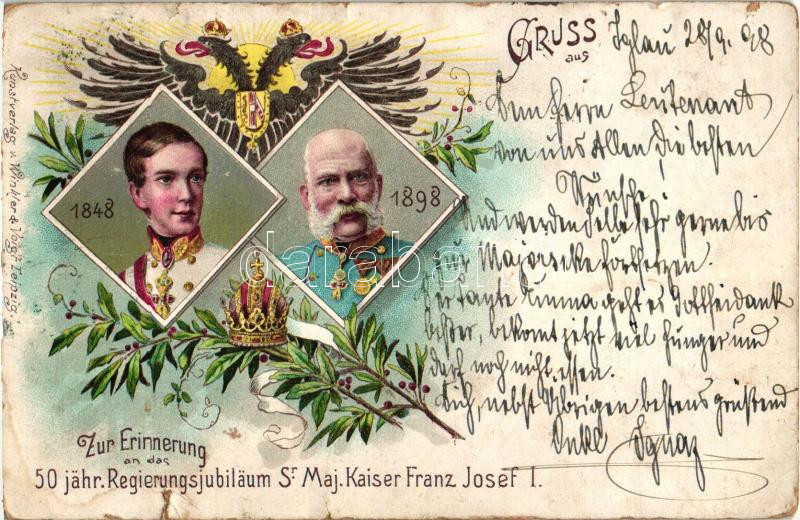 GRUSS
aus
Iglau 28/9. 98
Dem Herrn Leutenant
von uns Allen die besten
Wünsche
Und werden selbe sehr gerne bis
zur Majorsecke fortsetzen.
Emma geht es Gottseidank
besser, bekomt jetzt viel Hunger und
darf noch nicht essen.
Dich, nebst Übrigen bestens grüßend
Onkl Ignaz
1848
1898
Kunstverlag v. Winkler & Voigt Leipzig.
darabanth
Zur Erinnerung
an das
50 jähr. Regierungsjubiläum Sr Maj. Kaiser Franz Josef I.